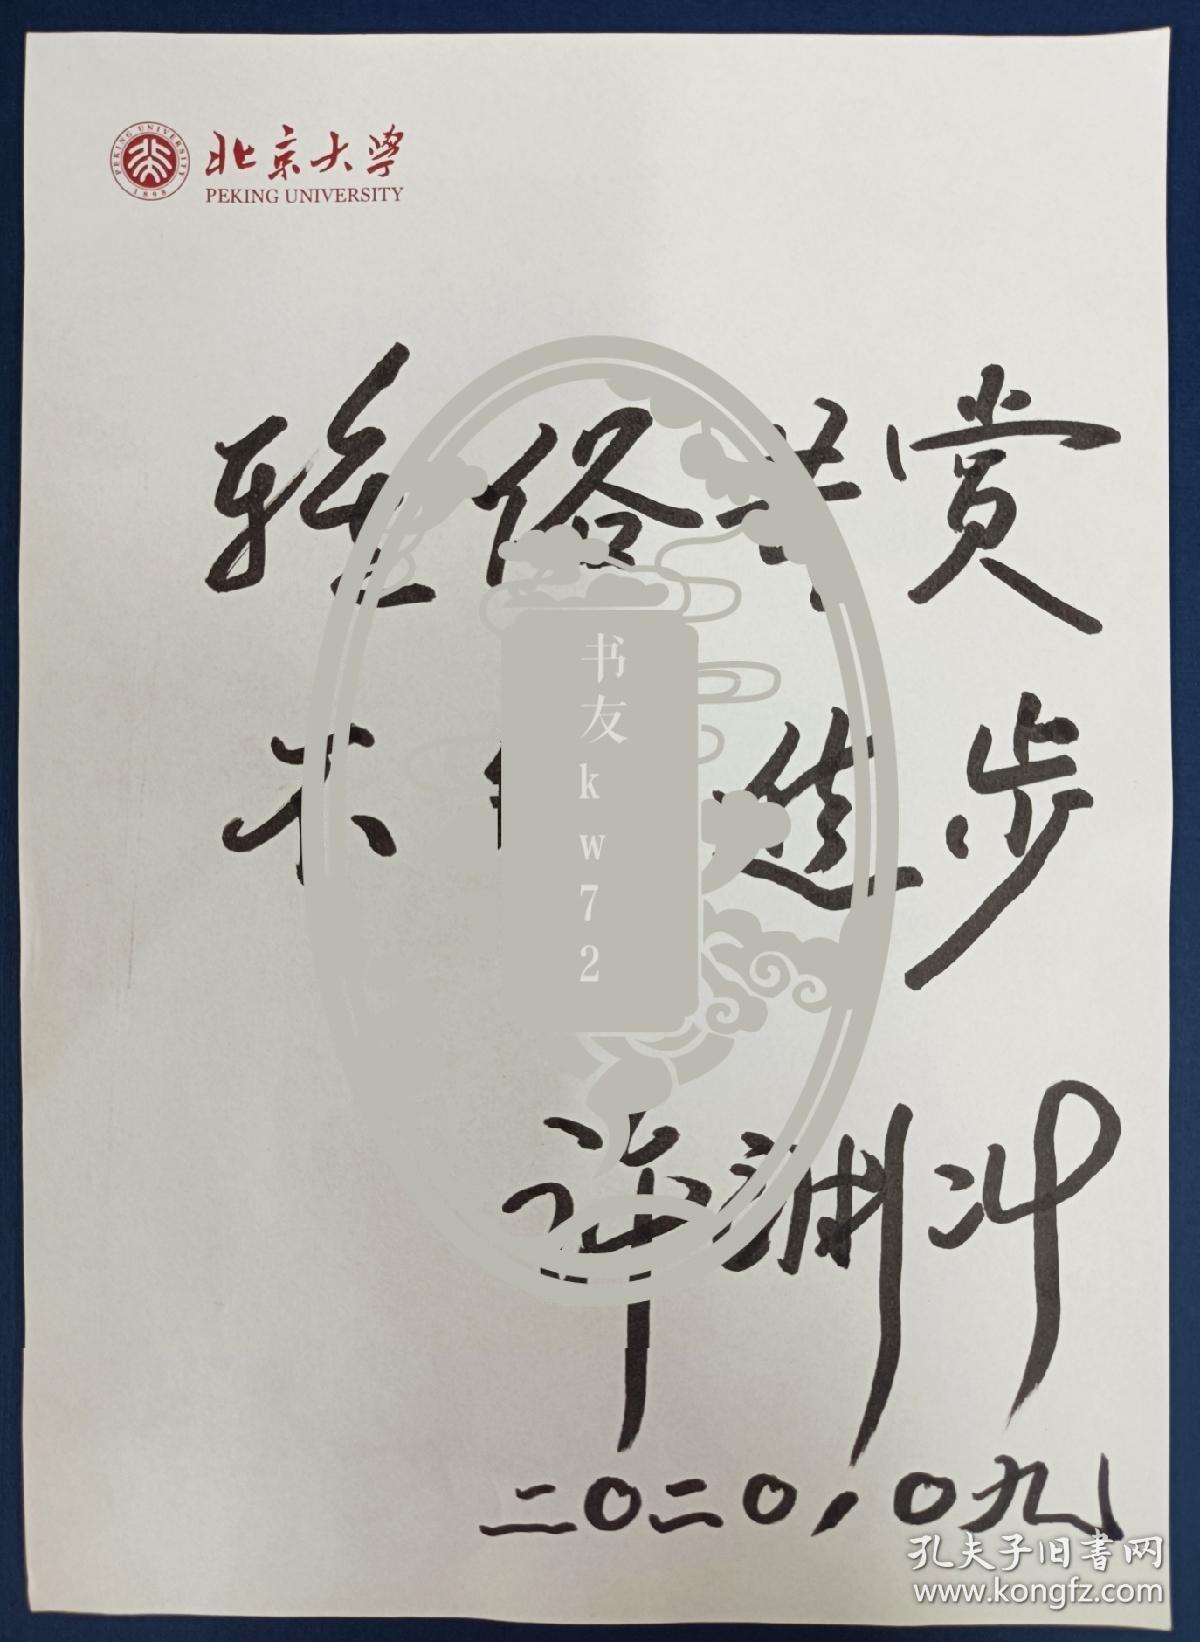 北京大学
PEKING UNIVERSITY
PEKING UNIVERSITY
1898
雅俗共赏
不 进步
许渊冲
二〇二〇，〇九
书友kw72
孔夫子旧书网
www.kongfz.com